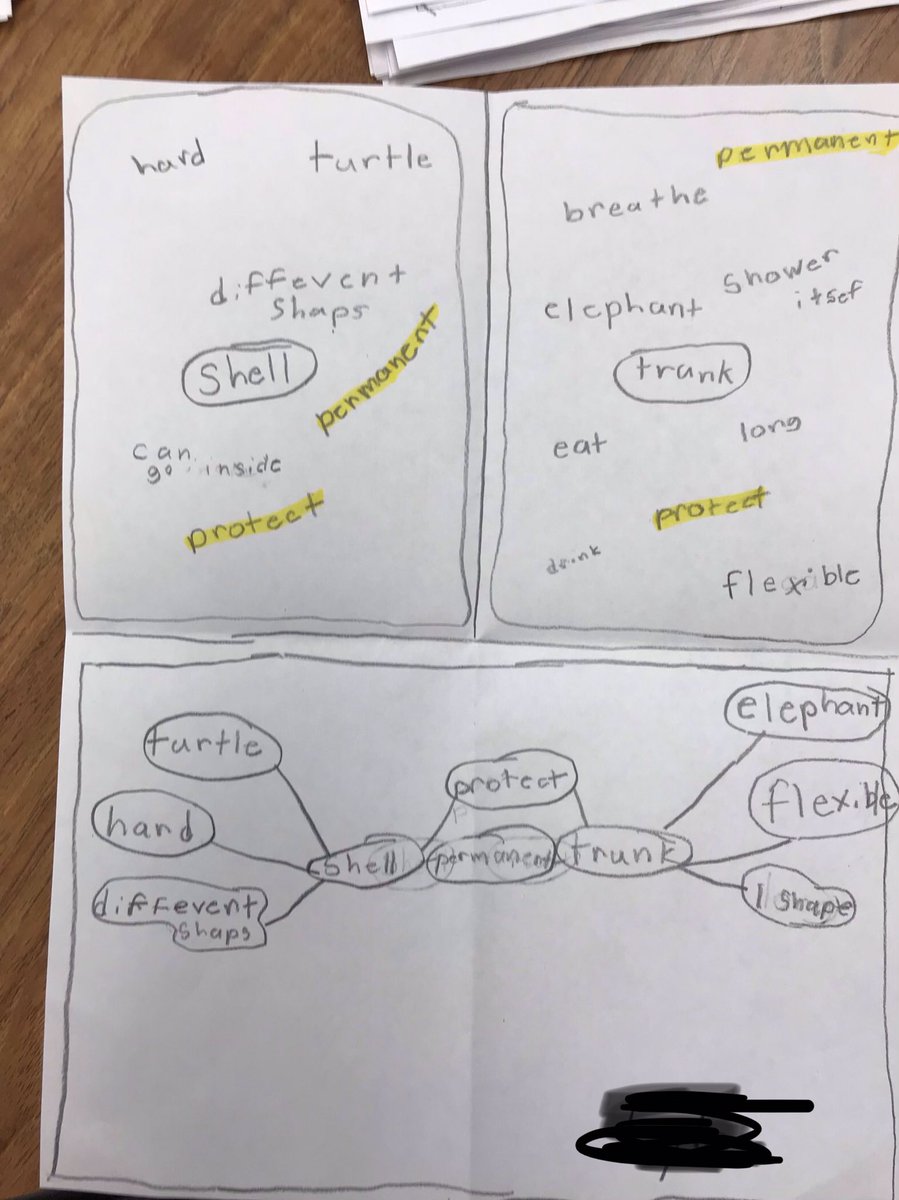 hard
turtle
different
shaps
shell
permanent
can
go inside
protect
permanent
breathe
shower
itsef
elephant
trunk
eat
long
protect
drink
flexible
turtle
hard
different
shaps
shell
protect
permanent
trunk
elephant
flexible
1 shape